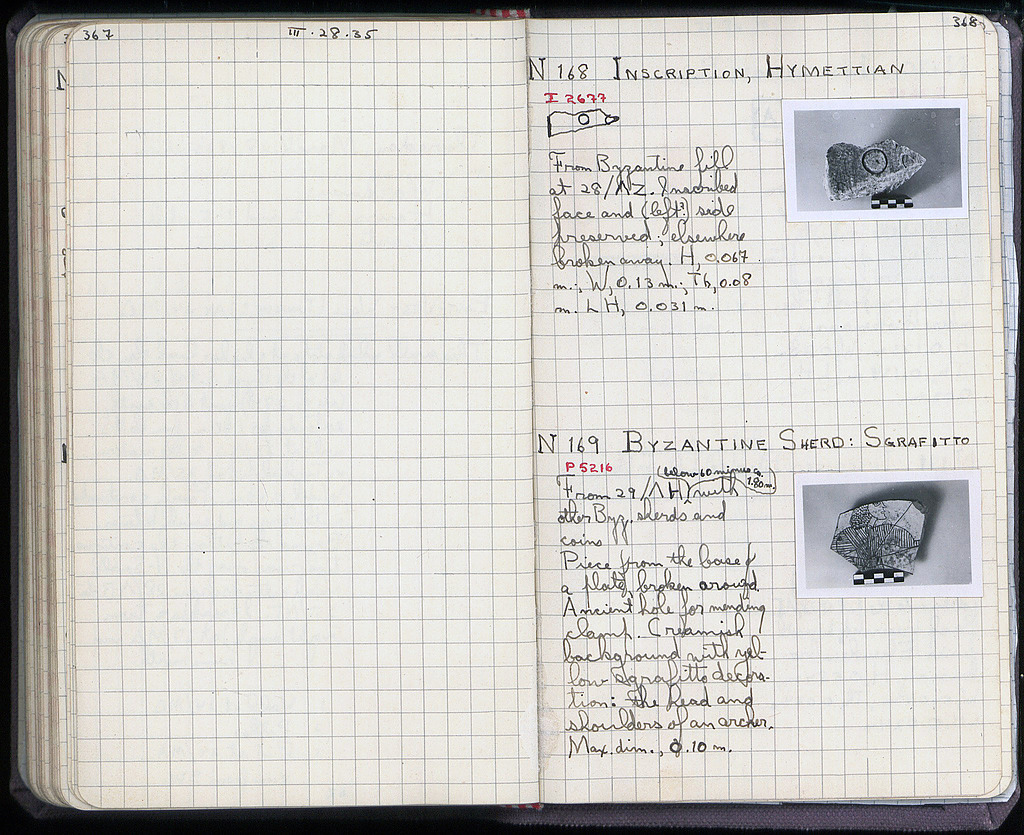 367
III · 28 · 35
368
N 168 INSCRIPTION, HYMETTIAN
I 2677
From Byzantine fill
at 28/ΛΖ. Inscribed
face and (left?) side
preserved; elsewhere
broken away. H, 0.067
m.; W, 0.13 m.; Th, 0.08
m. LH, 0.031 m.
N 169 BYZANTINE SHERD: SGRAFITTO
P 5216
(below 60 minus ca.
1.80 m.)
From 29/ΛΗ with
other Byz. sherds and
coins
Piece from the base of
a plate, broken around.
Ancient hole for mending
clamp. Creamish
background with yel-
low sgrafitto decora-
tion: the head and
shoulders of an archer.
Max. dim., 0.10 m.